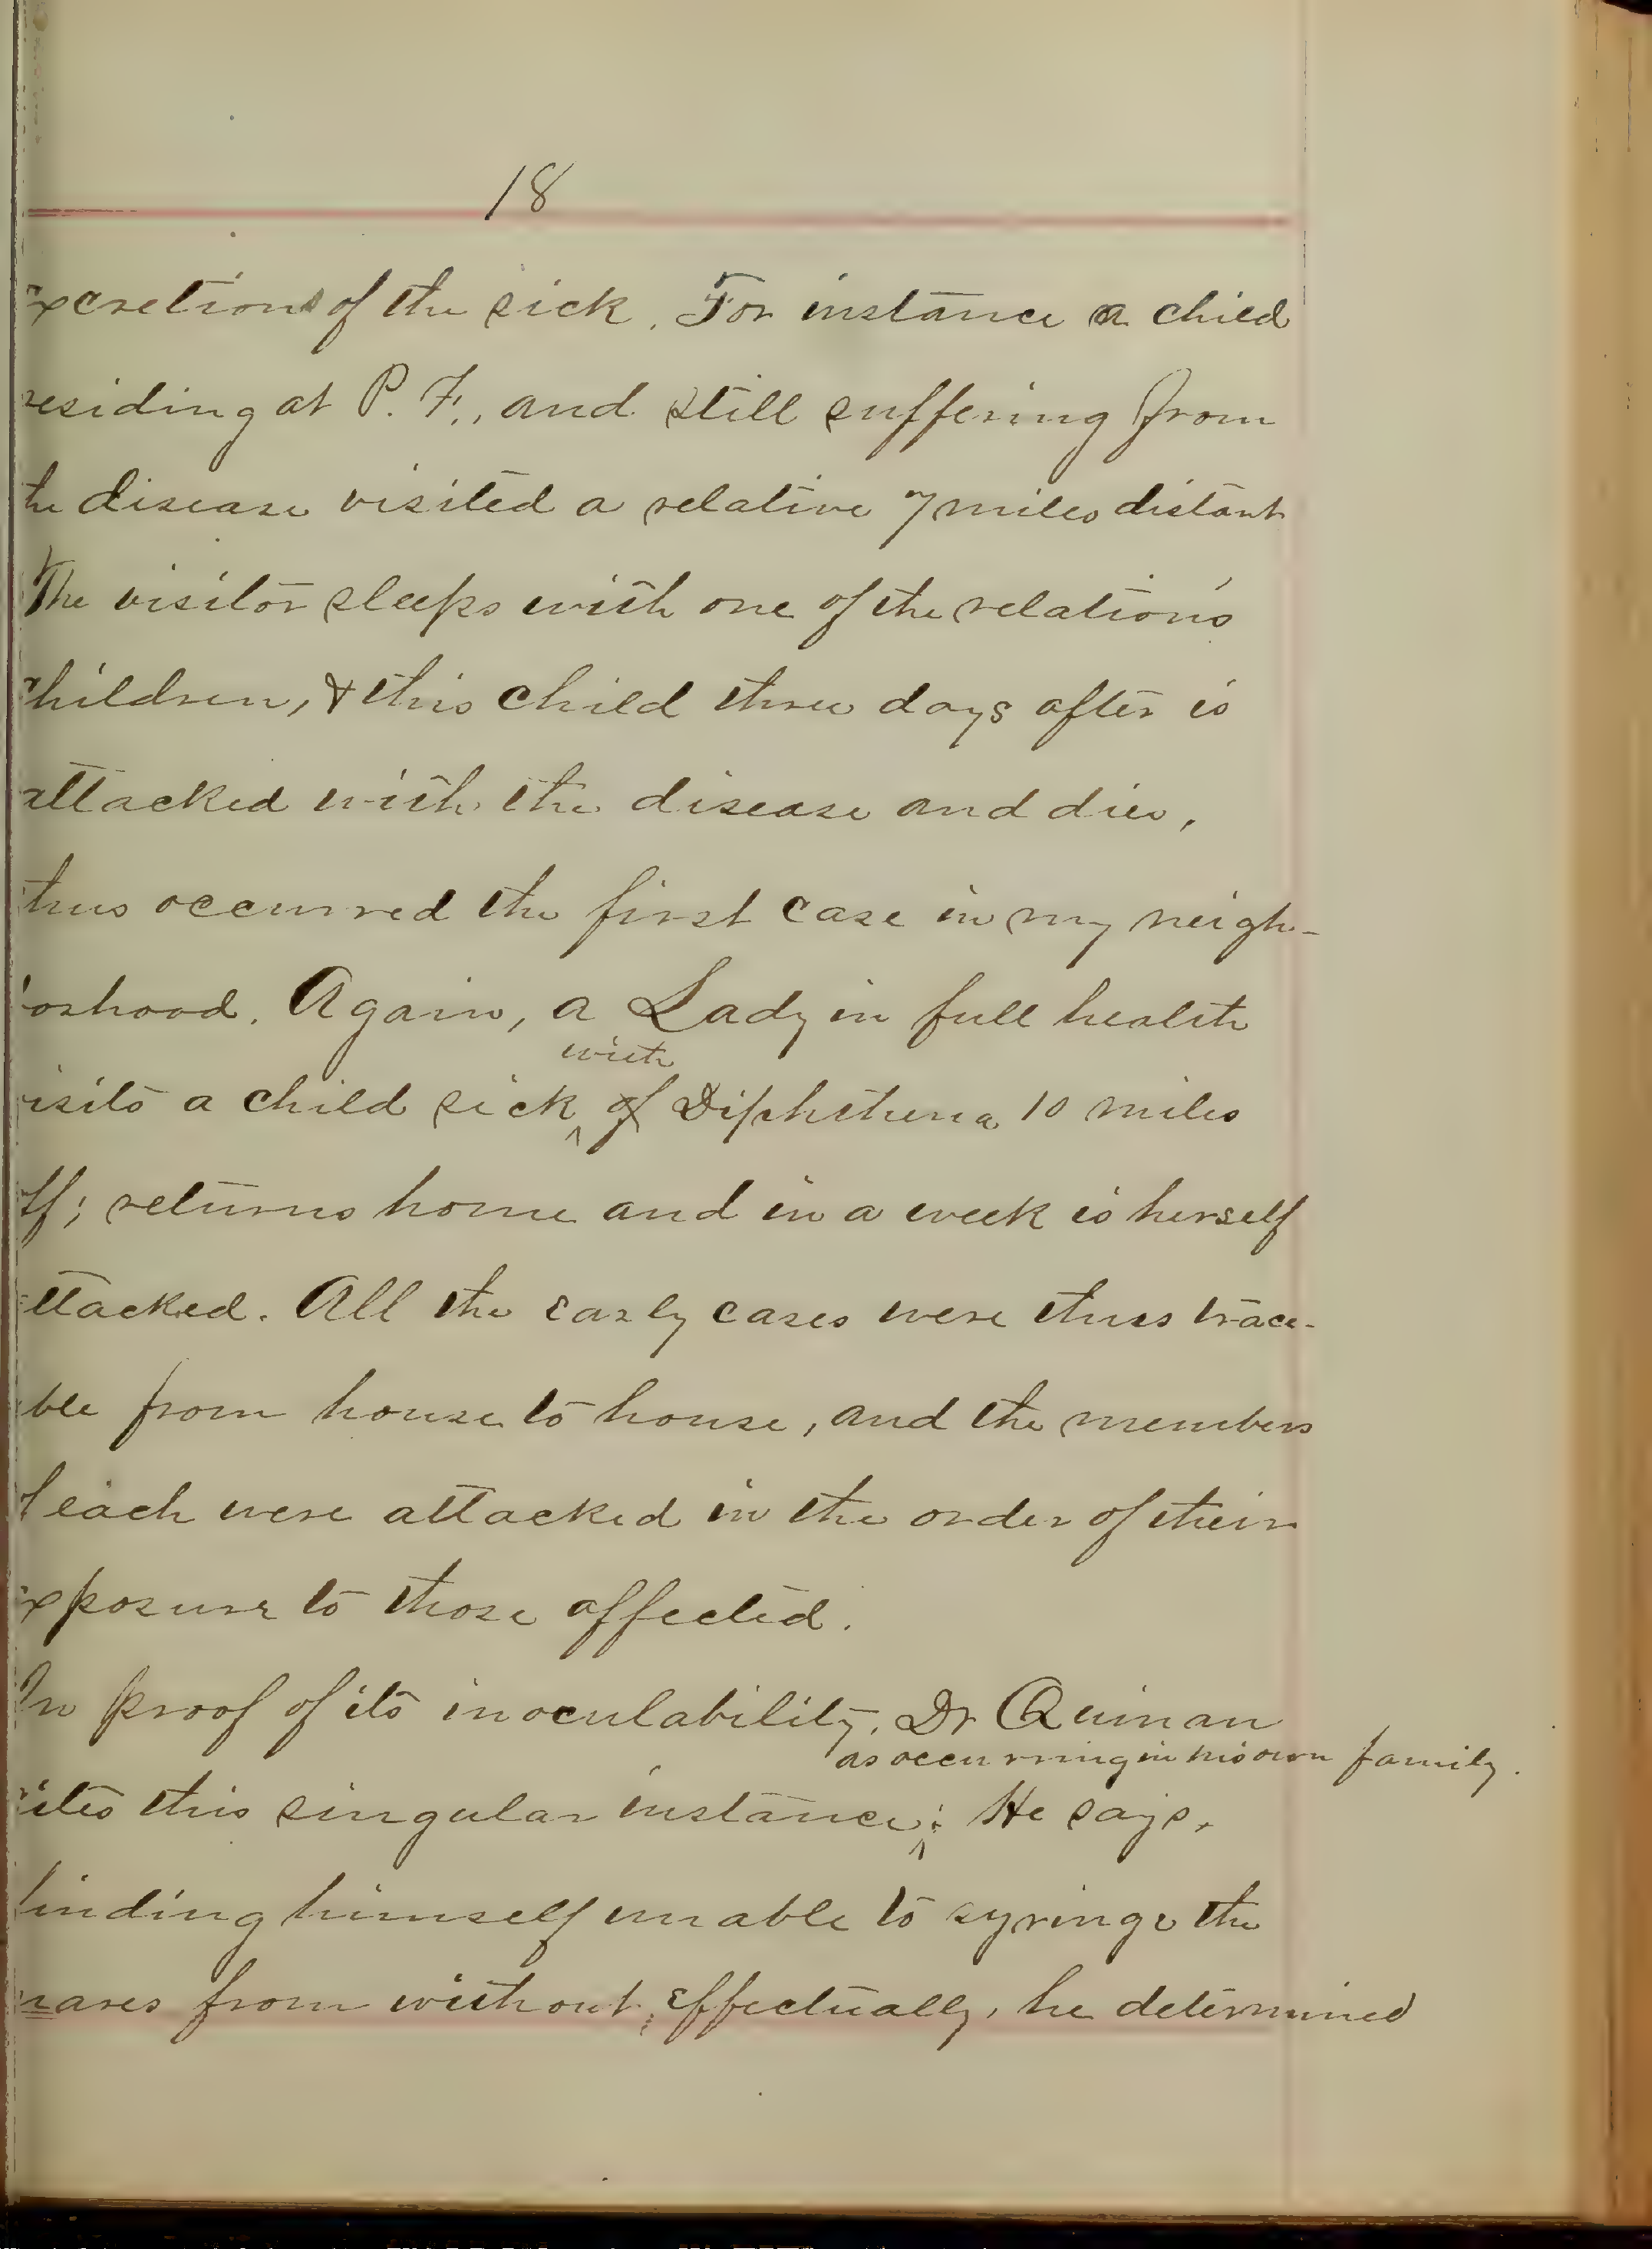 18
excretions of the sick. For instance a child
residing at P. F., and still suffering from
the disease visited a relative 7 miles distant
The visitor sleeps with one of the relation's
children, & this child three days after is
attacked with the disease and dies,
thus occurred the first case in my neigh-
borhood. Again, a Lady in full health
with
visits a child sick of Diphtheria 10 miles
off; returns home and in a week is herself
attacked. All the early cases were thus trace-
ble from house to house, and the members
of each were attacked in the order of their
exposure to those affected.
In proof of its inoculability, Dr Quinan
as occurring in his own family.
cites this singular instance; He says,
finding himself unable to syringe the
nares from without, effectually, he determined